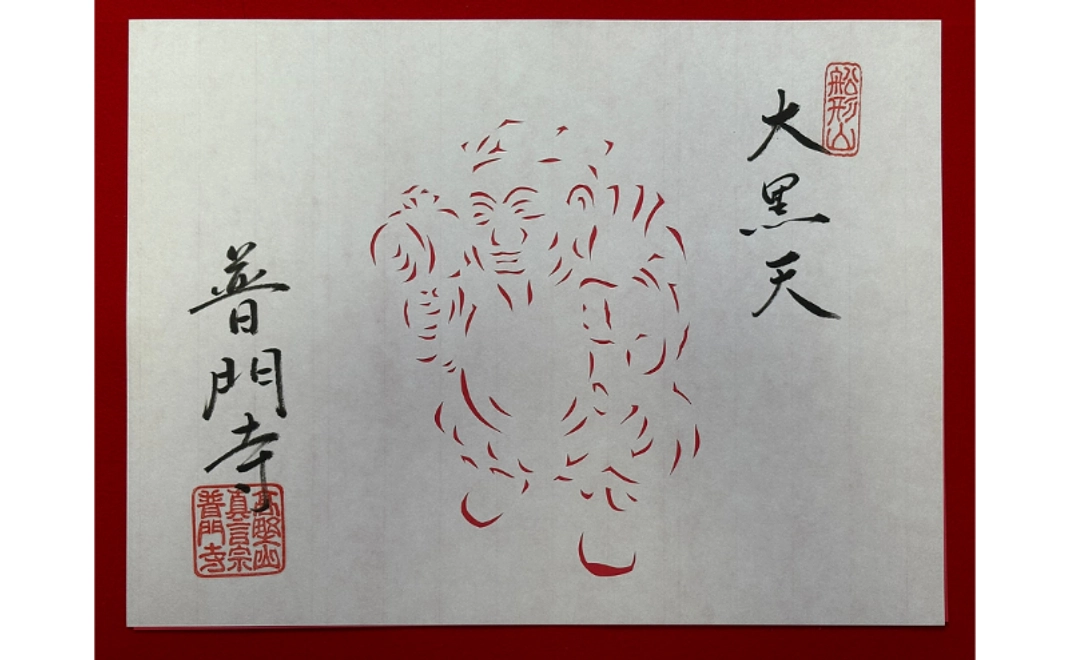 船形山
大黒天
普門寺
高野山
真言宗
普門寺